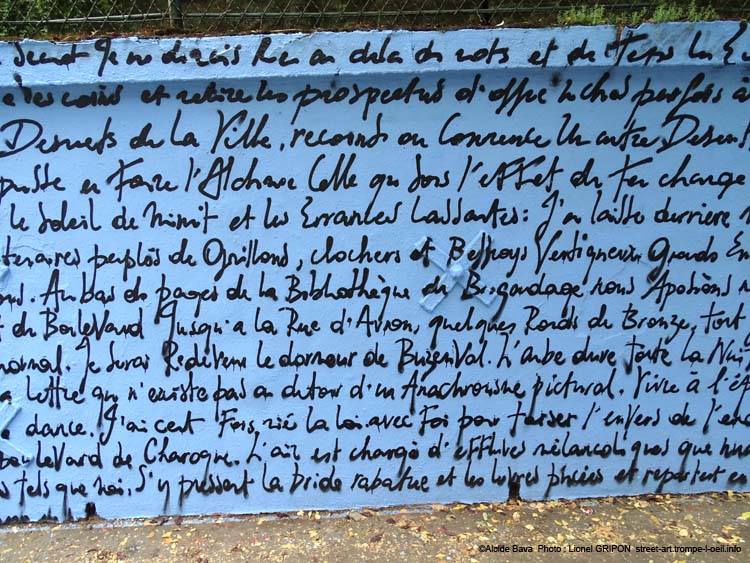 Secret Je ne dirais Rien au delà de mots et de
les coins et retire les prospectus d'offre
Desuets de la Ville, recoinds ou Commence Un autre
puisse en Faire l'Alchimie Celle qui sous l'effet du feu change
le Soleil de Minuit et les Errances Lassantes : J'ai laissé derrière
peuplés de Grillons, clochers et Beffroys Vertigineux Grands
. Au bas de pages de la Bibliothèque du Brigandage nous
du BouleVard Jusqu'a la Rue d'Avron, quelques Ronds de Bronze, tout
normal. Je serai Redevenu le dormeur de BuzenVal. L'aube dure toute la Nuit
lettre qui n'existe pas au detour d'un Anachronisme pictural. Vivre à
dance. J'ai cent Fois, la Loi avec Foi pour l'envers de
boulevard de Charogne. L'air est chargé d'effluves mélancoliques que
tels que moi, S'y pressent la bride rabatue et les lèvres et repartent en
©Aloïde Bava Photo : Lionel GRIPON street-art.trompe-l-oeil.info